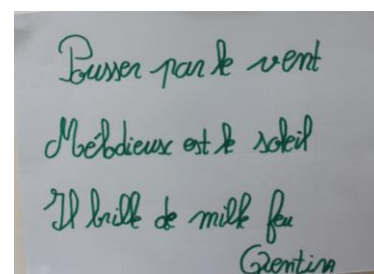 Pousser par le vent
Mélodieux est le soleil
Il brille de mille feu